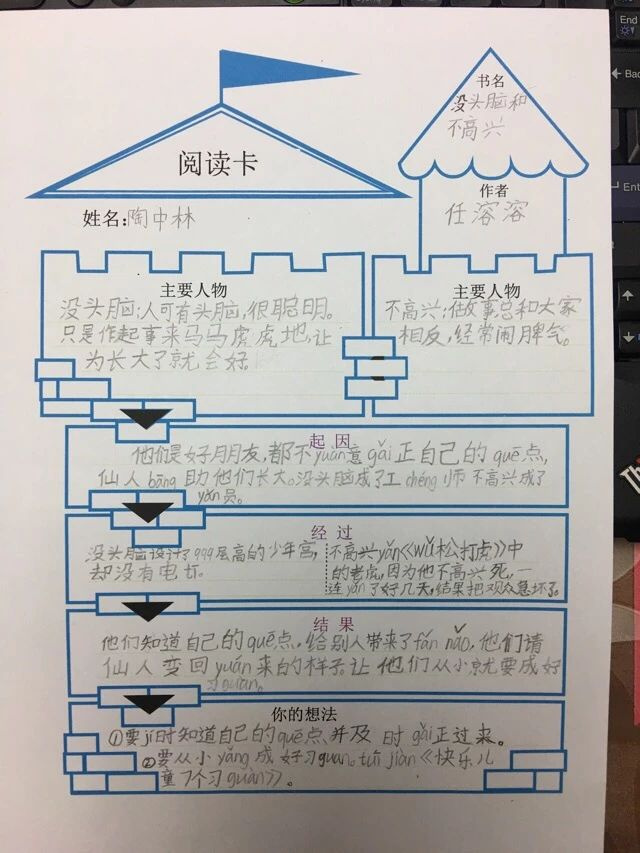 阅读卡
书名
没头脑和
不高兴
作者
任溶溶
姓名:陶中林
主要人物
没头脑:人可有头脑,很聪明。
只是作起事来马马虎虎地,让
为长大了就会好。
主要人物
不高兴:做事总和大家
相反,经常闹脾气。
起因
他们是好朋友,都不yuàn意gǎi正自己的quē点,
仙人bāng助他们长大。没头脑成了工chéng师 不高兴成了
yǎn员。
经过
没头脑设计了999层高的少年宫,
却没有电梯。
不高兴yǎn《wǔ松打虎》中
的老虎,因为他不高兴死,一
连yǎn了好几天,结果把观众急坏了。
结果
他们知道自己的quē点,给别人带来了fán nǎo,他们请
仙人变回yuán来的样子。让他们从小就要成好
习guàn。
你的想法
①要jí时知道自己的quē点,并及时gǎi正过来。
②要从小yǎng成 好习guàn。tuī jiàn《快乐儿
童7个习guàn》。